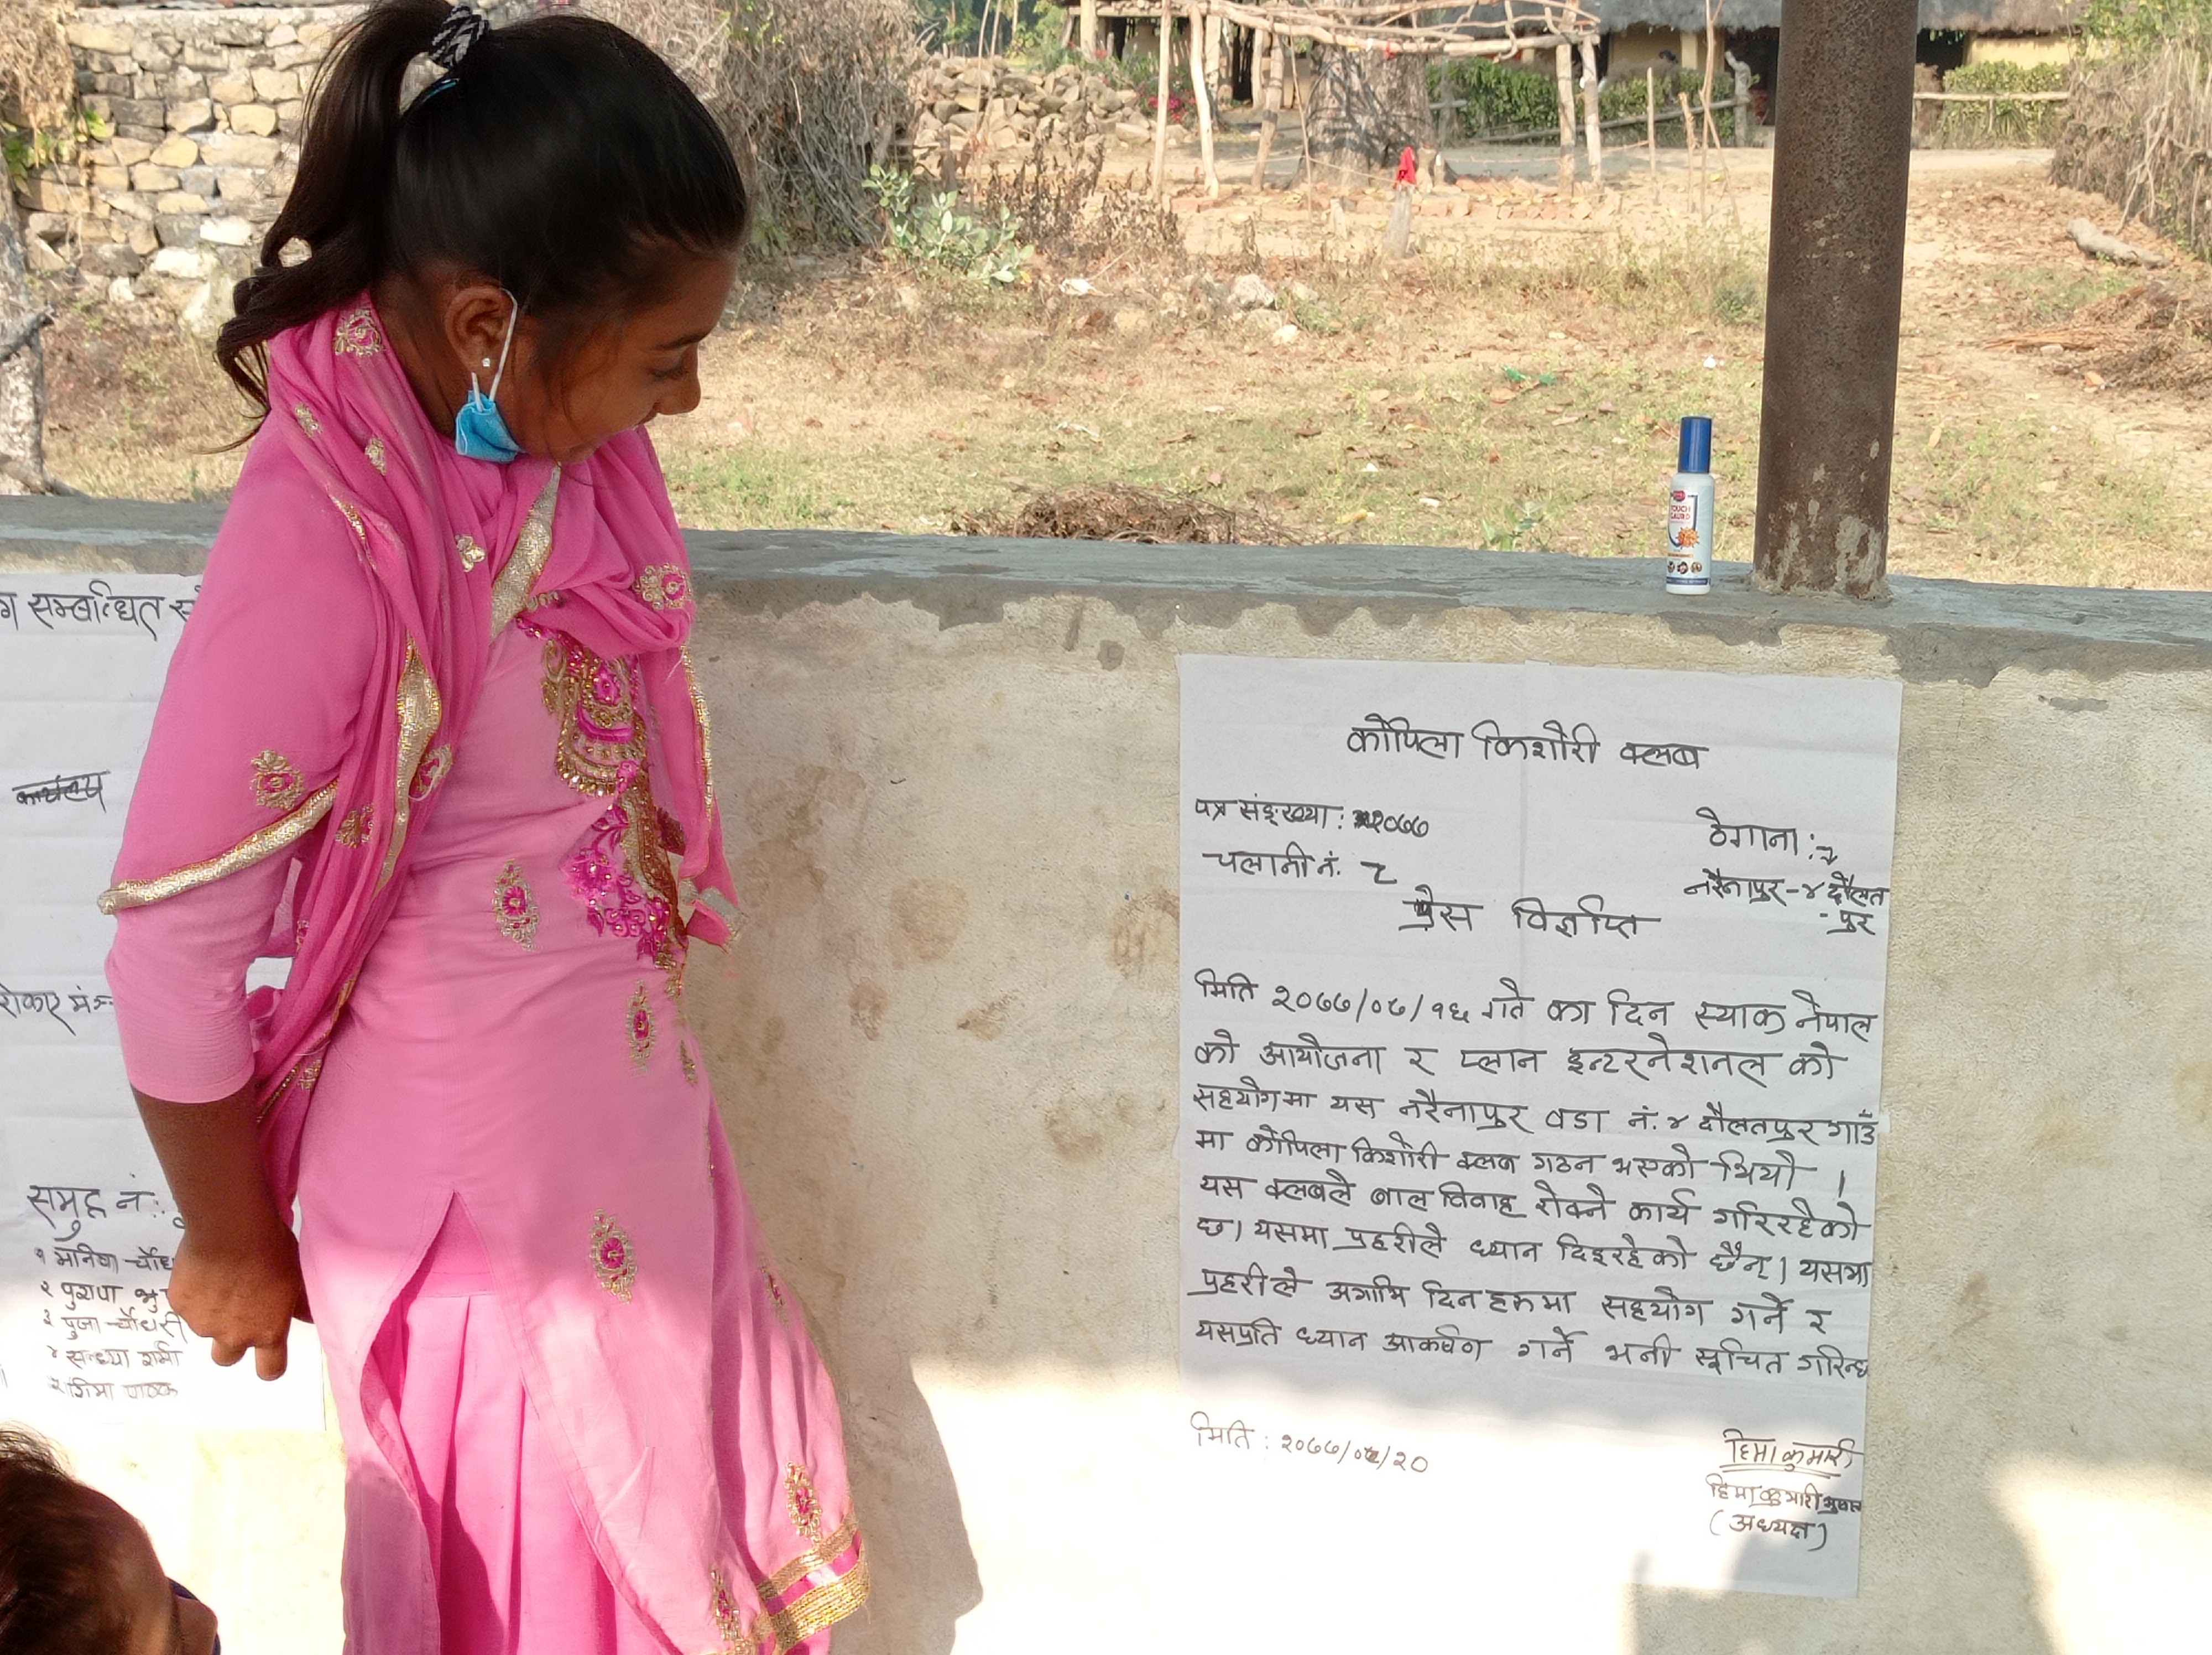 सम्बन्धित
कार्यलय
समुह नं:
१ मनिषा चौध
२ पुराधा
३ पुजा चौधरी
४ सन्ध्या शर्मा
TOUCH
कोपिला किशोरी क्लब
पत्र सङ्ख्या: २०७७
चलानी नं. ८
ठेगाना:
नरैनापुर-४ दौलत
-पुर
प्रेस विज्ञप्ति
मिति २०७७/०७/१६ गते का दिन स्याक नेपाल
को आयोजना र प्लान इन्टरनेशनल को
सहयोगमा यस नरैनापुर वडा नं. ४ दौलतपुर गाउँ
मा कोपिला किशोरी क्लब गठन भएको थियो ।
यस क्लबले बाल विवाह रोक्ने कार्य गरिरहेको
छ। यसमा प्रहरीले ध्यान दिइरहेको छैन्। यसमा
प्रहरीले अगामि दिनहरुमा सहयोग गर्ने र
यसप्रति ध्यान आकर्षण गर्ने भनी सूचित गरिन्छ
मिति : २०७७/०८/२०
हिमा कुमारी
हिमा कुमारी
(अध्यक्ष)